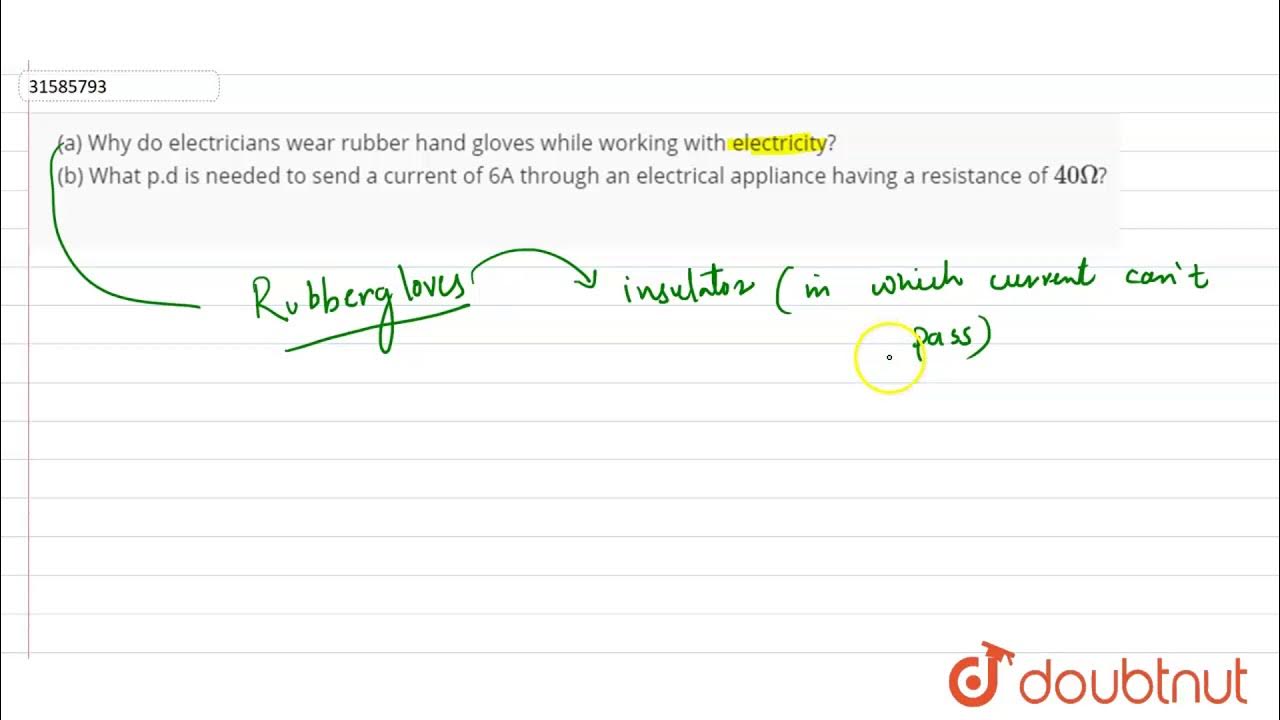 31585793
(a) Why do electricians wear rubber hand gloves while working with electricity?
(b) What p.d is needed to send a current of 6A through an electrical appliance having a resistance of 40Ω?
Rubber gloves insulator (in which current can't
pass)
doubtnut